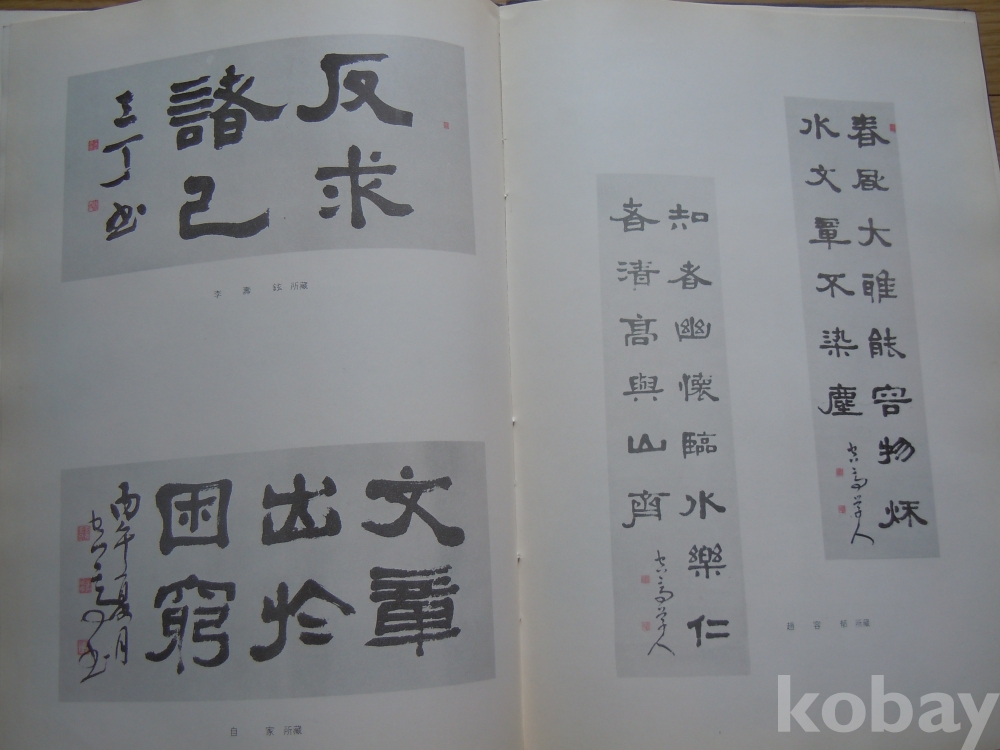 反求
諸己
所藏
文章
出於
困窮
丙午夏月
自家 所藏
春風大雅能容物秋
水文章不染塵
知者幽懷臨水樂仁
者清高與山齊
趙容郁 所藏
kobay